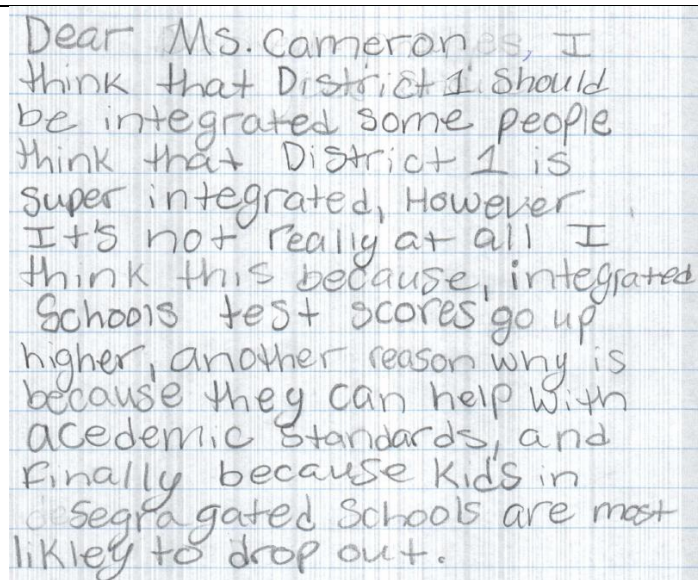 Dear Ms. Cameron, I
think that District 1 should
be integrated some people
think that District 1 is
super integrated, However
It's not really at all I
think this because, integrated
Schools test scores go up
higher, another reason why is
because they can help with
acedemic standards, and
Finally because kids in
segragated Schools are most
likley to drop out.